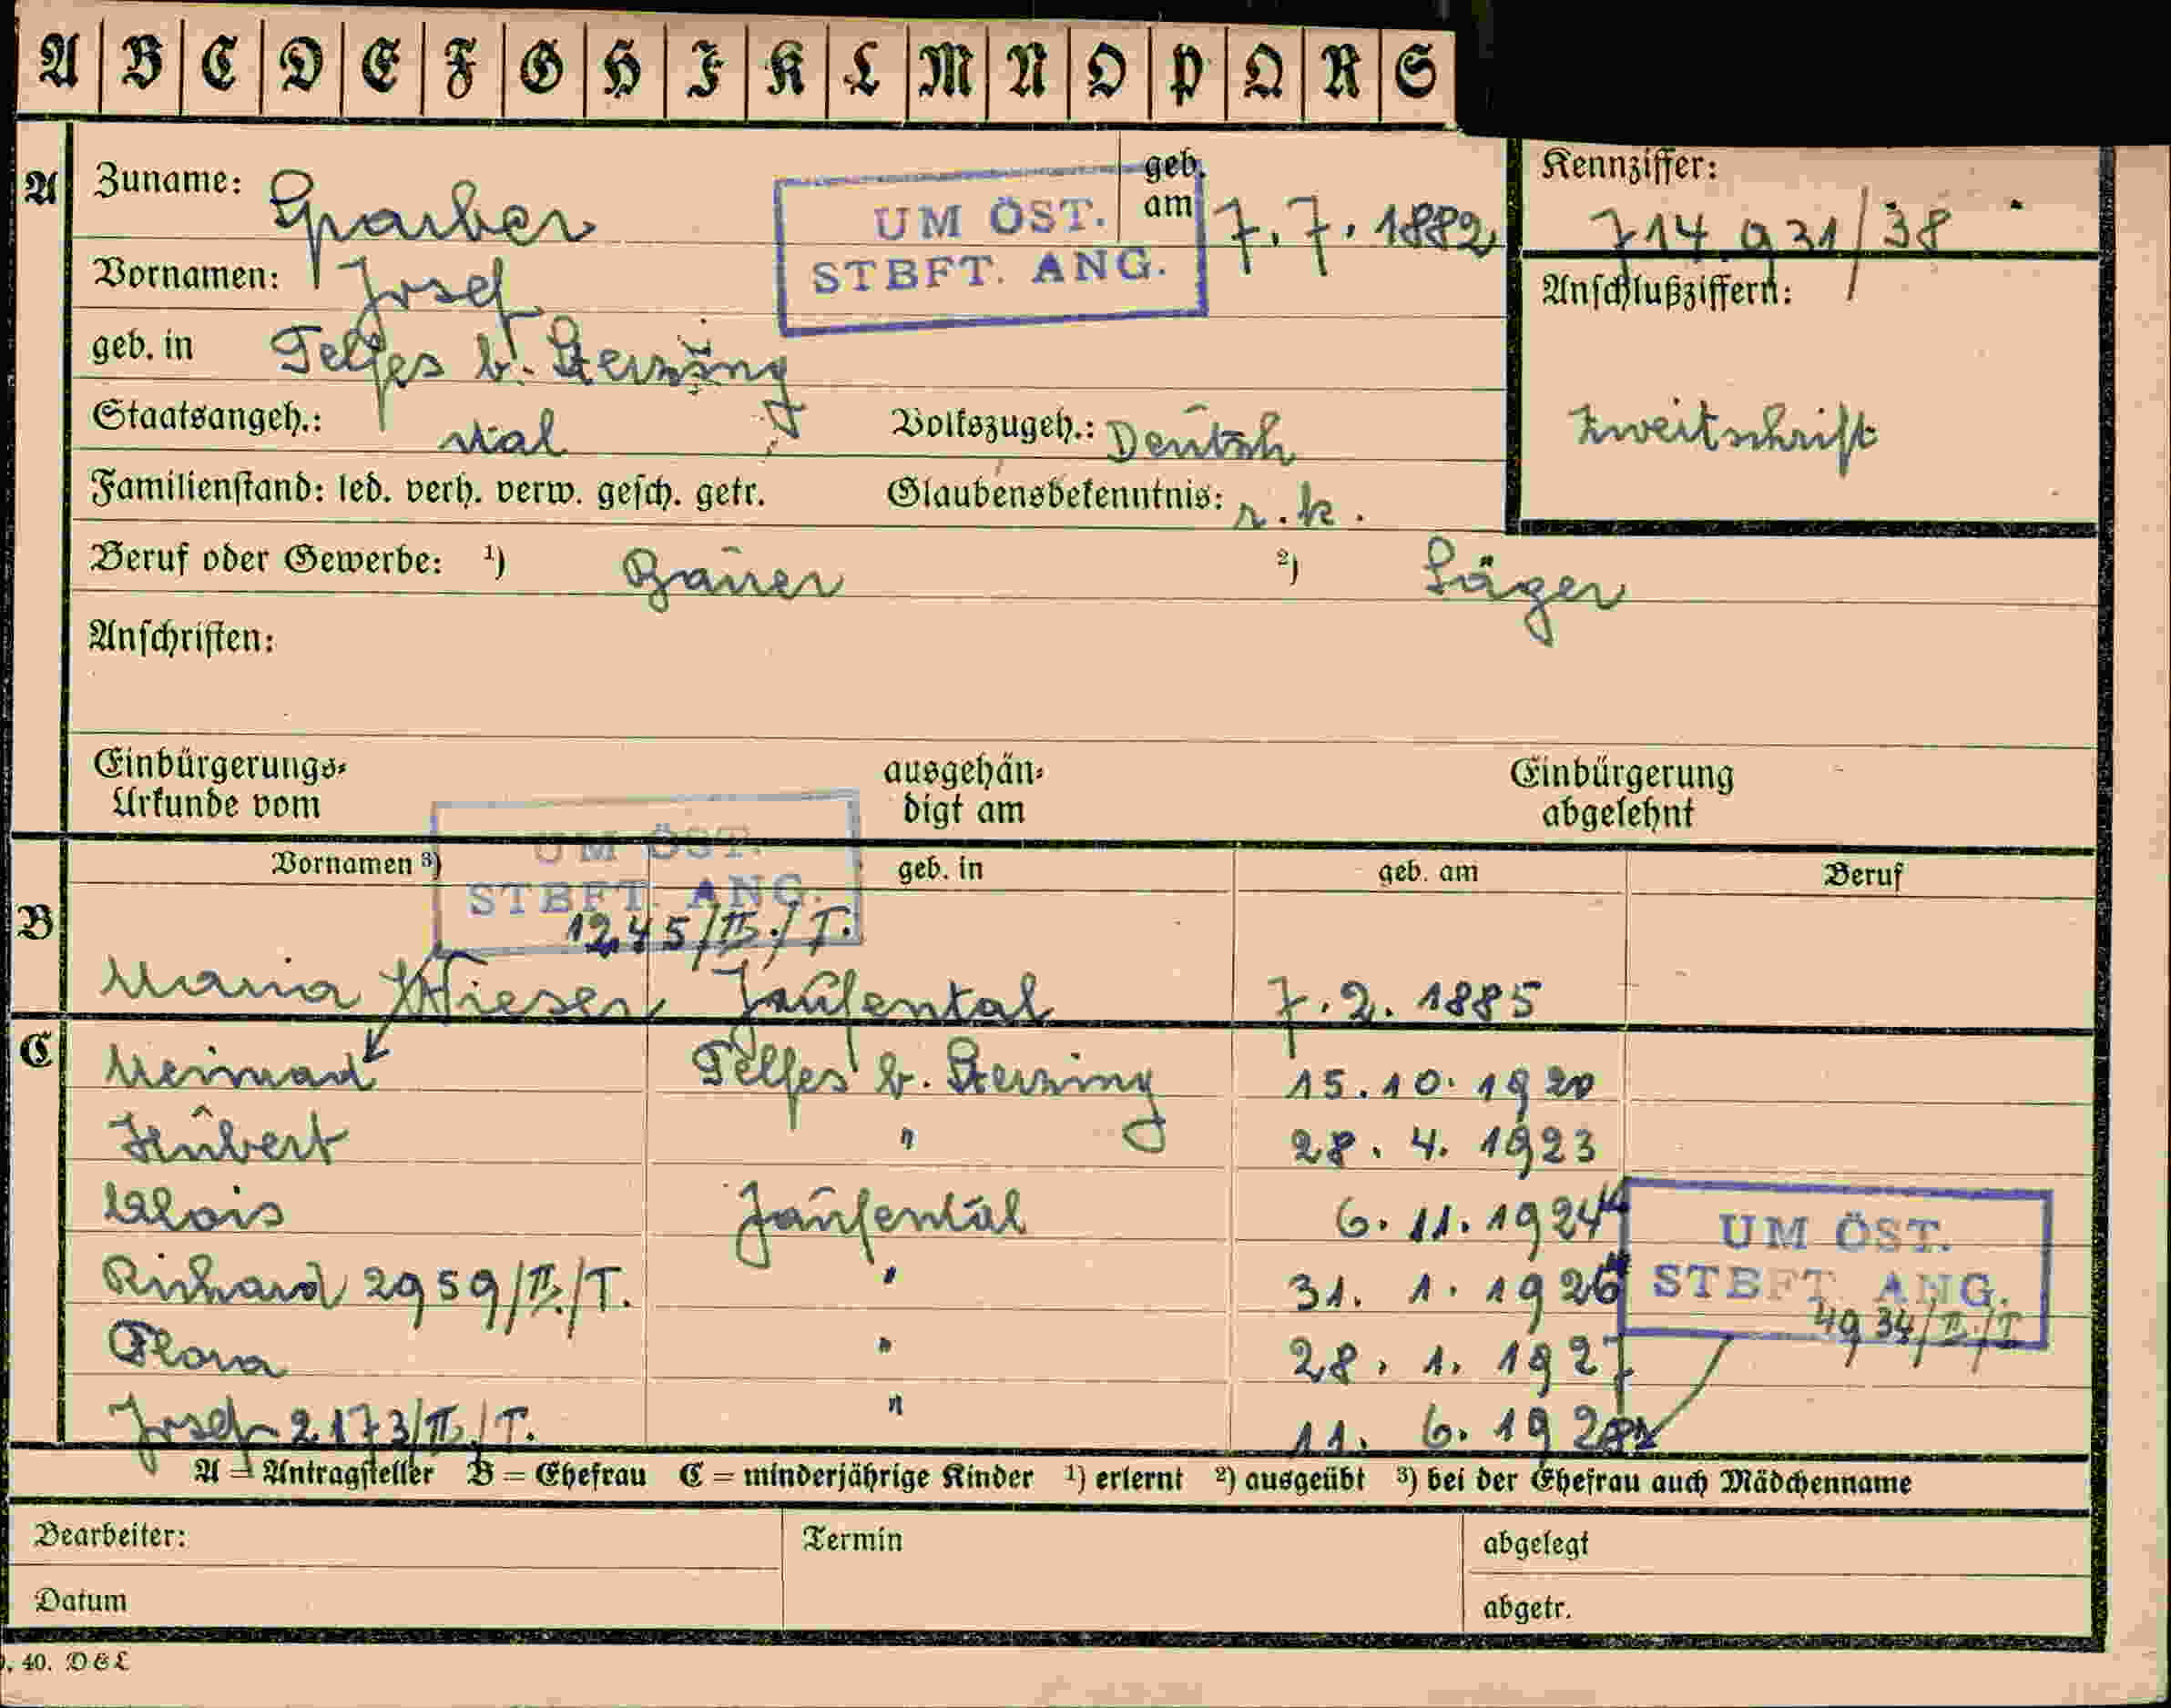 A B C D E F G H J K L M N O P Q R S
A
Zuname: Sparber
geb. am 7. 7. 1882
UM ÖST.
STBFT. ANG.
Kennziffer:
714 931/38
Vornamen: Josef
Anschlußziffern:
geb. in Telfes b. Sterzing
Zweitschrift
Staatsangeh.: ital
Volkszugeh.: Deutsch
Familienstand: led. verh. verw. gesch. getr.
Glaubensbekenntnis: r. k.
Beruf oder Gewerbe: ¹) Bauer ²) Säger
Anschriften:
Einbürgerungs-
Urkunde vom
ausgehän-
digt am
Einbürgerung
abgelehnt
UM ÖST.
STBFT. ANG.
1245/II./T.
B
Vornamen ³) geb. in geb. am Beruf
Maria Wieser Jaufental 7. 2. 1885
C
Meinrad Telfes b. Sterzing 15. 10. 1920
Hubert " 28. 4. 1923
Alois Jaufental 6. 11. 1924
Richard 2959/II./T. " 31. 1. 1926
UM ÖST.
STBFT. ANG.
4934/II./T
Flora " 28. 1. 1927
Josef 2173/II./T. " 11. 6. 1928
A = Antragsteller B = Ehefrau C = minderjährige Kinder ¹) erlernt ²) ausgeübt ³) bei der Ehefrau auch Mädchenname
Bearbeiter:
Termin
abgelegt
Datum
abgetr.
. 40. D & L